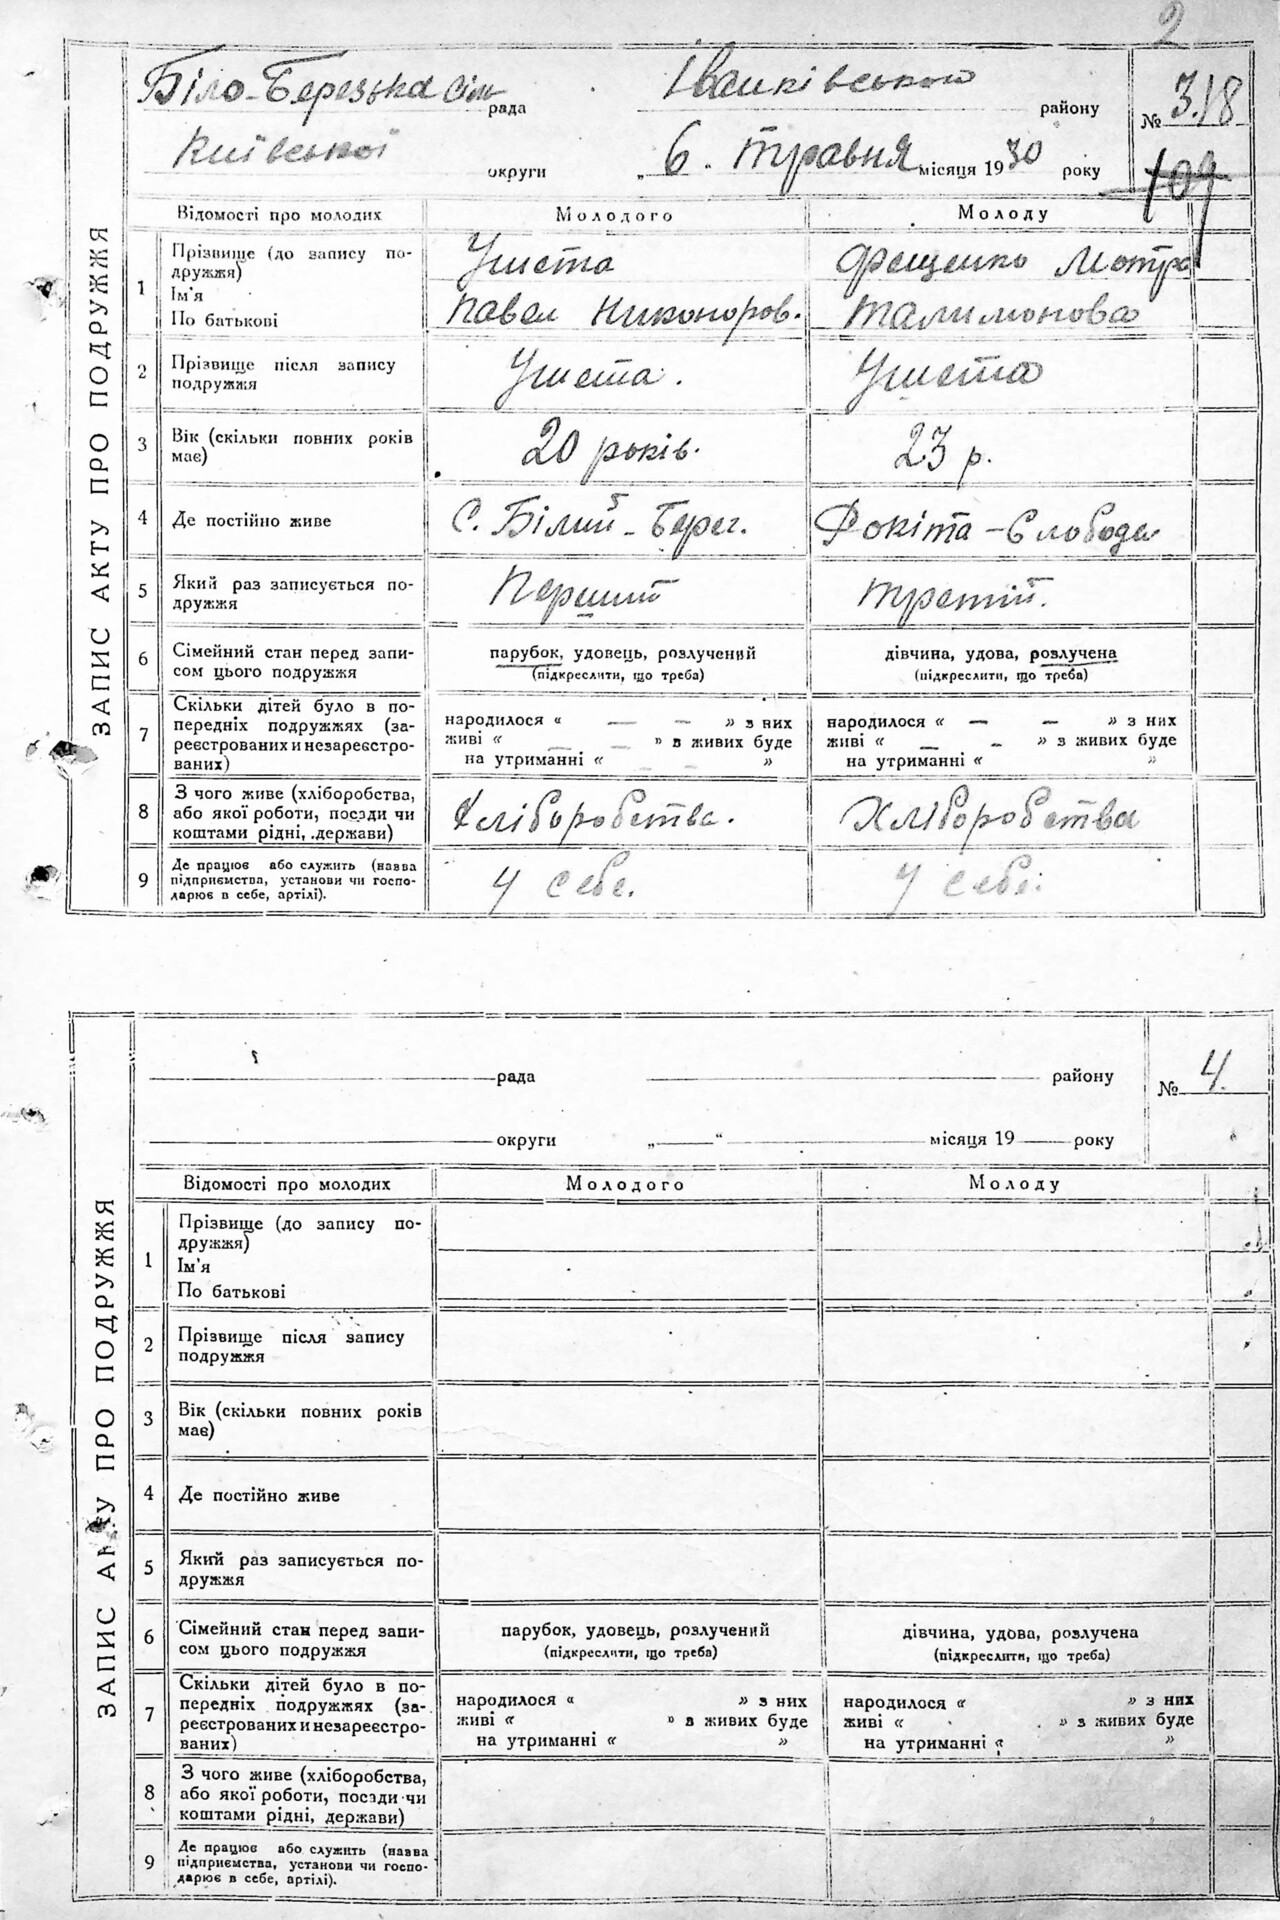 2
Біло-Березька сіль рада Іванківського району № 3.18
Київської округи „ 6 " травня місяця 1930 року 109
ЗАПИС АКТУ ПРО ПОДРУЖЖЯ
Відомості про молодих Молодого Молоду
1 Прізвище (до запису по-
дружжя)
Ім'я
По батькові
Фещенко Мотря
Павел Никоноров. Талимонова
2 Прізвище після запису
подружжя
3 Вік (скільки повних років
має)
20 років. 23 р.
4 Де постійно живе С. Білий-Берег. Рокіта-Слобода
5 Який раз записується по-
дружжя
Перший третій.
6 Сімейний стан перед запи-
сом цього подружжя
парубок, удовець, розлучений дівчина, удова, розлучена
(підкреслити, що треба) (підкреслити, що треба)
7 Скільки дітей було в по-
передніх подружжях (за-
реєстрованих и незареєстро-
ваних)
народилося « — — » з них народилося « — — » з них
живі « — — » в живих буде живі « — — » з живих буде
на утриманні « — — » на утриманні « »
8 З чого живе (хліборобства,
або якої роботи, посади чи
коштами рідні, держави)
Хліборобства. Хліборобства
9 Де працює або служить (назва
підприємства, установи чи госпо-
дарює в себе, артілі).
У себе. У себе.
рада району № 4.
округи „ " місяця 19 року
ЗАПИС АКТУ ПРО ПОДРУЖЖЯ
Відомості про молодих Молодого Молоду
1 Прізвище (до запису по-
дружжя)
Ім'я
По батькові
2 Прізвище після запису
подружжя
3 Вік (скільки повних років
має)
4 Де постійно живе
5 Який раз записується по-
дружжя
6 Сімейний стан перед запи-
сом цього подружжя
парубок, удовець, розлучений дівчина, удова, розлучена
(підкреслити, що треба) (підкреслити, що треба)
7 Скільки дітей було в по-
передніх подружжях (за-
реєстрованих и незареєстро-
ваних)
народилося « » з них народилося « » з них
живі « » в живих буде живі « » з живих буде
на утриманні « » на утриманні « »
8 З чого живе (хліборобства,
або якої роботи, посади чи
коштами рідні, держави)
9 Де працює або служить (назва
підприємства, установи чи госпо-
дарює в себе, артілі).